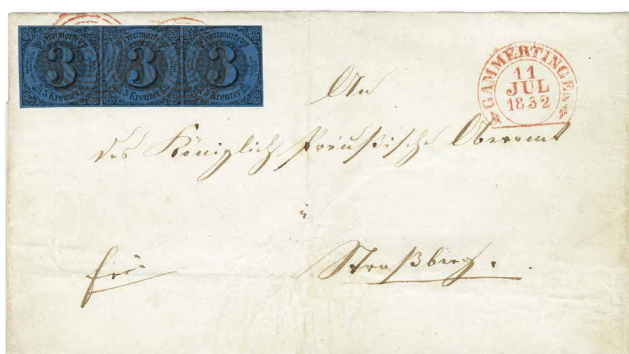 Freimarke Freimarke Freimarke
3 3 3
3 Kreuzer 3 Kreuzer 3 Kreuzer
GAMMERTINGEN
11
JUL
1852
An
das Königlich Preußische Oberamt
Straßberg.